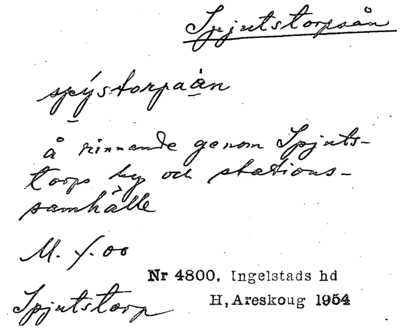 Spjutstorpsån
spýstorpaàn
å rinnande genom Spjuts-
torps by och stations-
samhälle
M. f. 00
Nr 4800. Ingelstads hd
H, Areskoug 1954
Spjutstorp